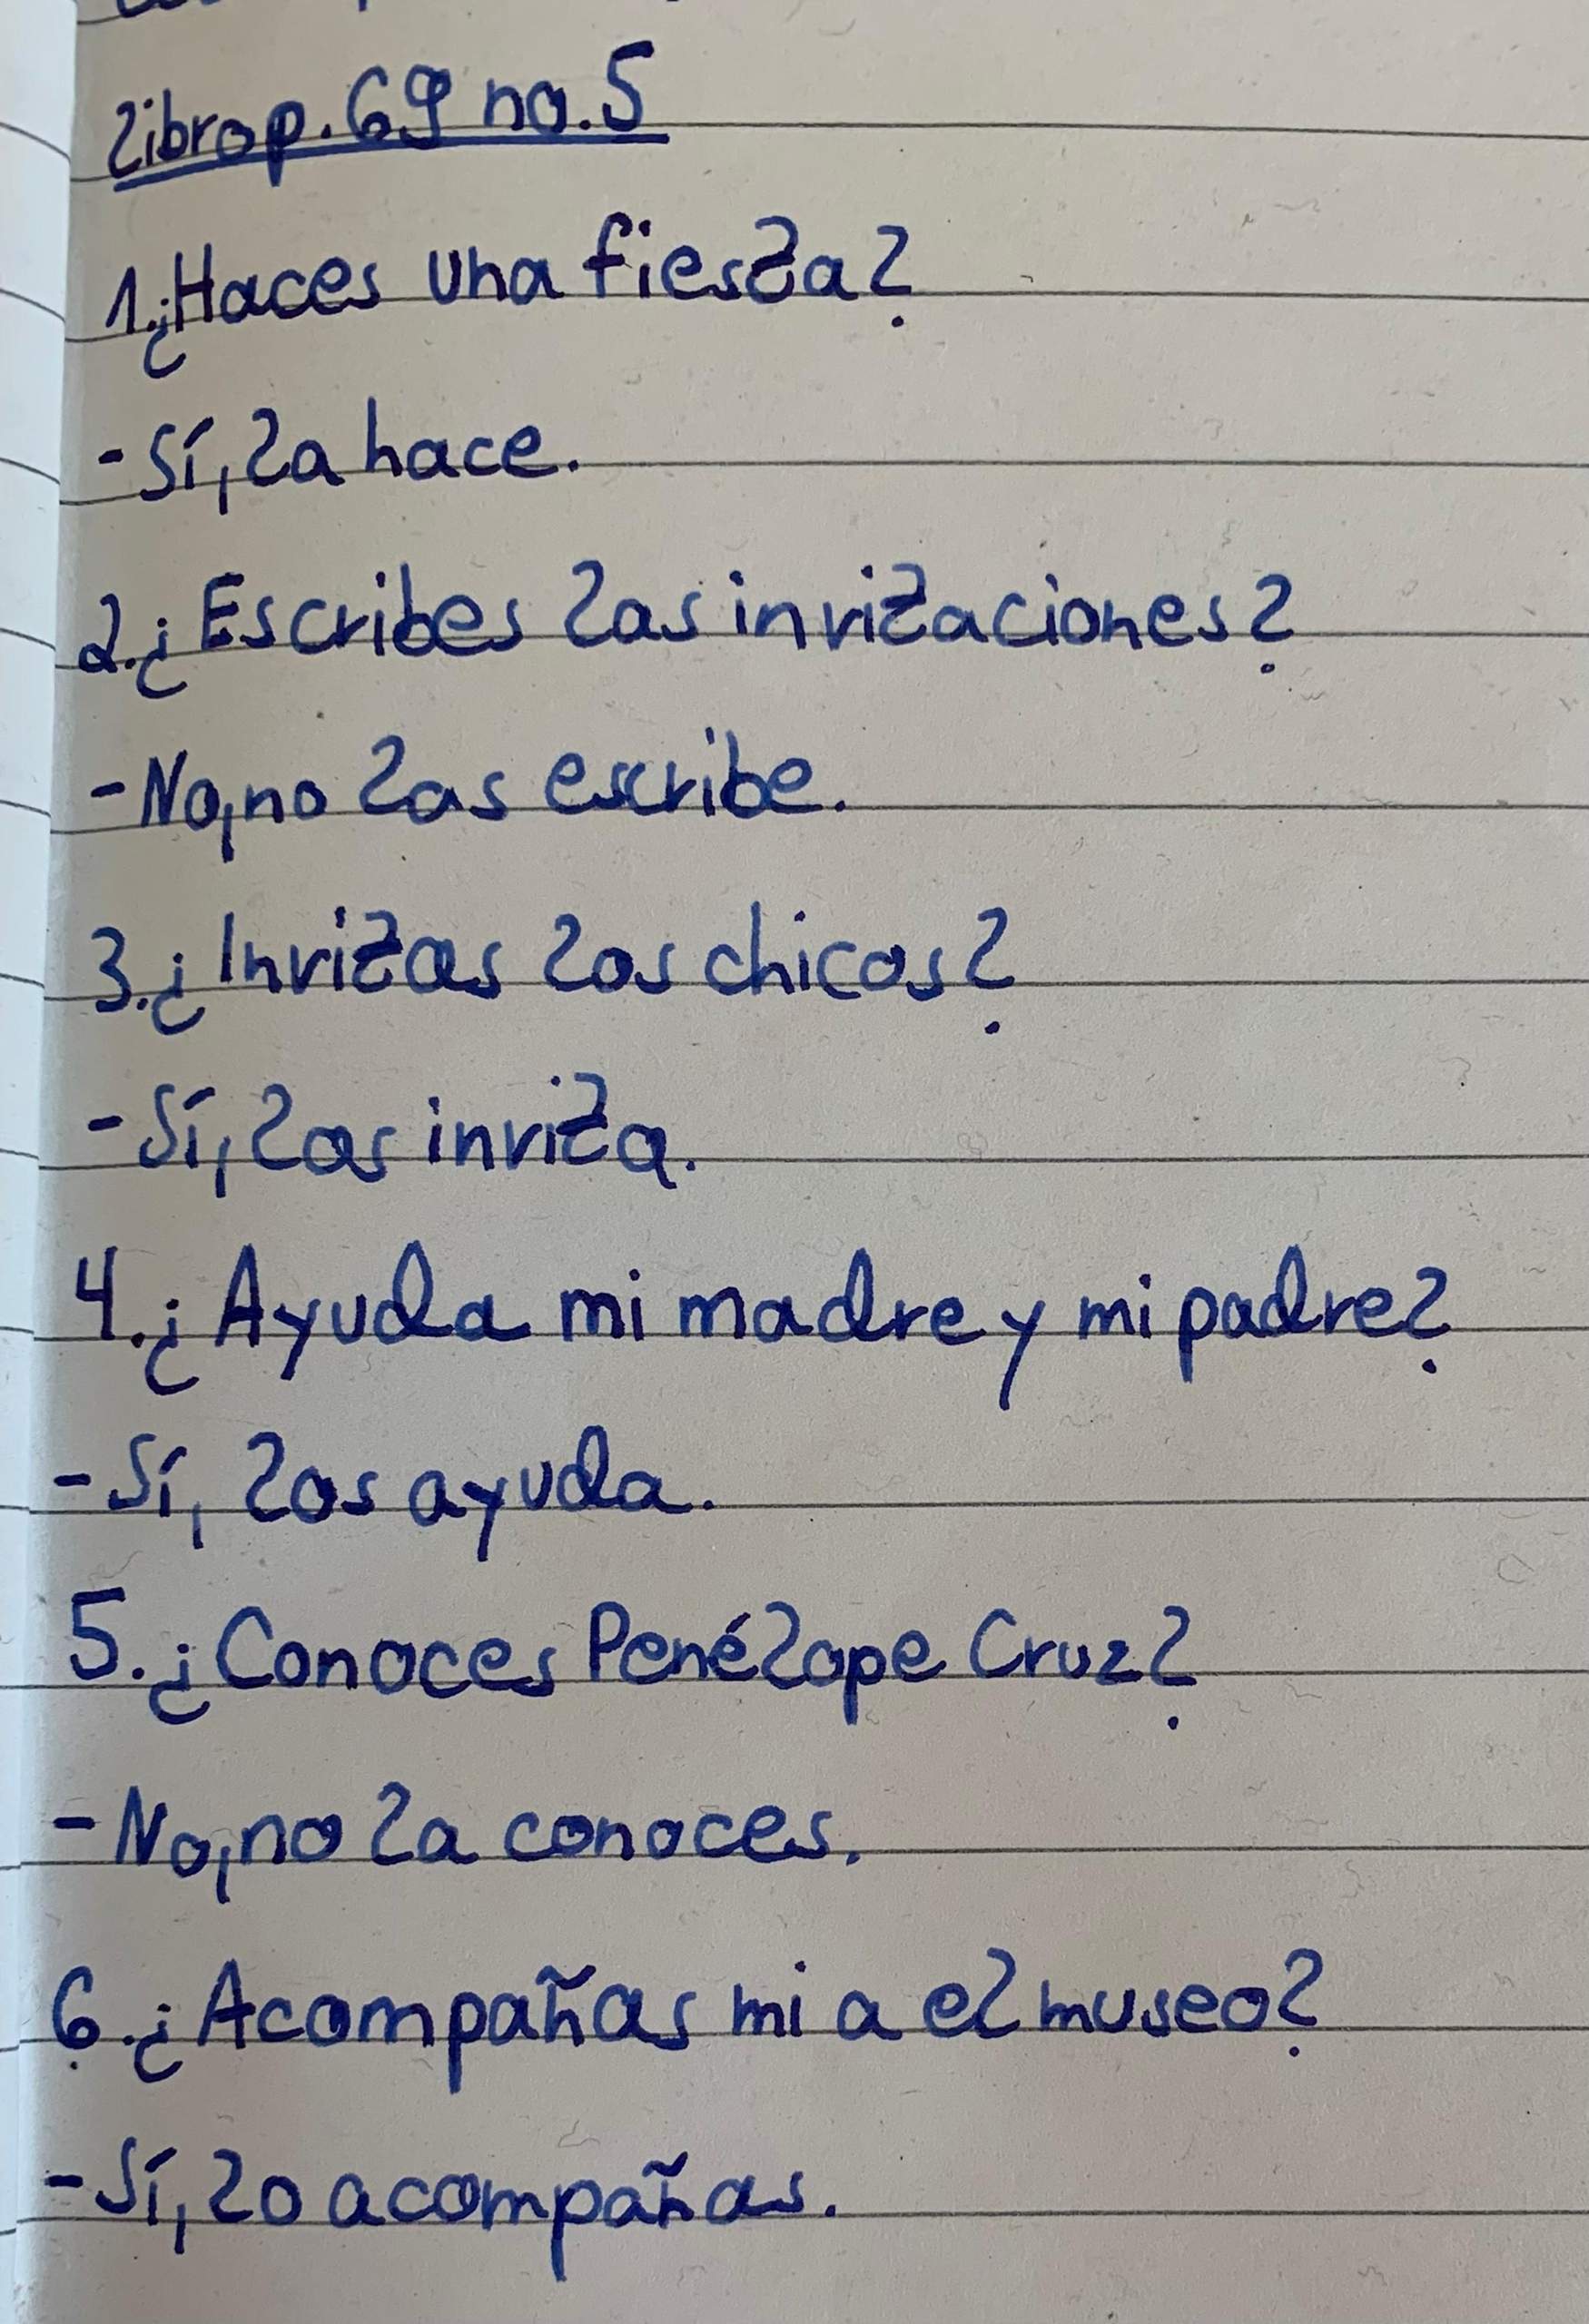 Libro p. 69 no. 5
1. ¿Haces una fiesta?
- Sí, la hace.
2. ¿Escribes las invitaciones?
- No, no las escribe.
3. ¿Invitas los chicos?
- Sí, los invita.
4. ¿Ayuda mi madre y mi padre?
- Sí, los ayuda.
5. ¿Conoces Penélope Cruz?
- No, no la conoces.
6. ¿Acompañas mi a el museo?
- Sí, lo acompañas.